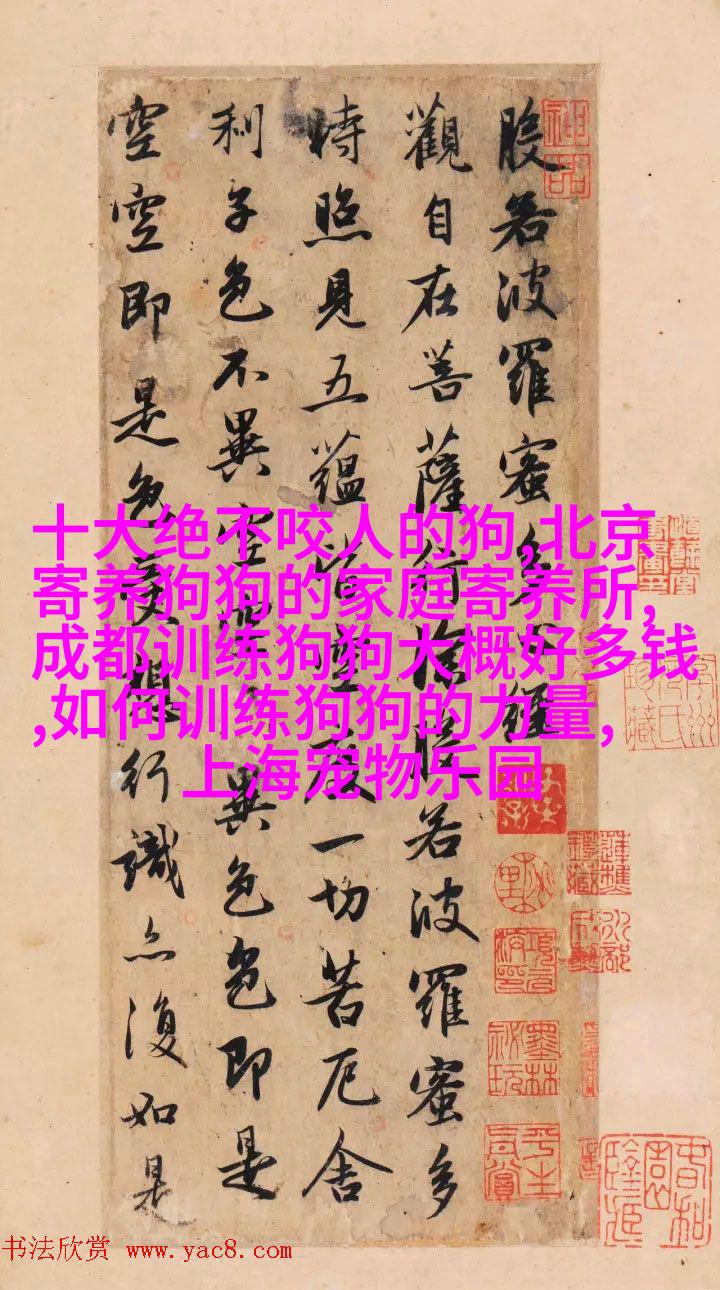 般若波羅蜜多心經
觀自在菩薩行深般若波羅蜜多
時照見五蘊皆空度一切苦厄舍
利子色不異空空不異色色即是
空空即是色受想行識亦復如是
十大绝不咬人的狗,北京
寄养狗狗的家庭寄养所,
成都训练狗狗大概好多钱
,如何训练狗狗的力量,
上海宠物乐园
神品
书法欣赏 www.yac8.com